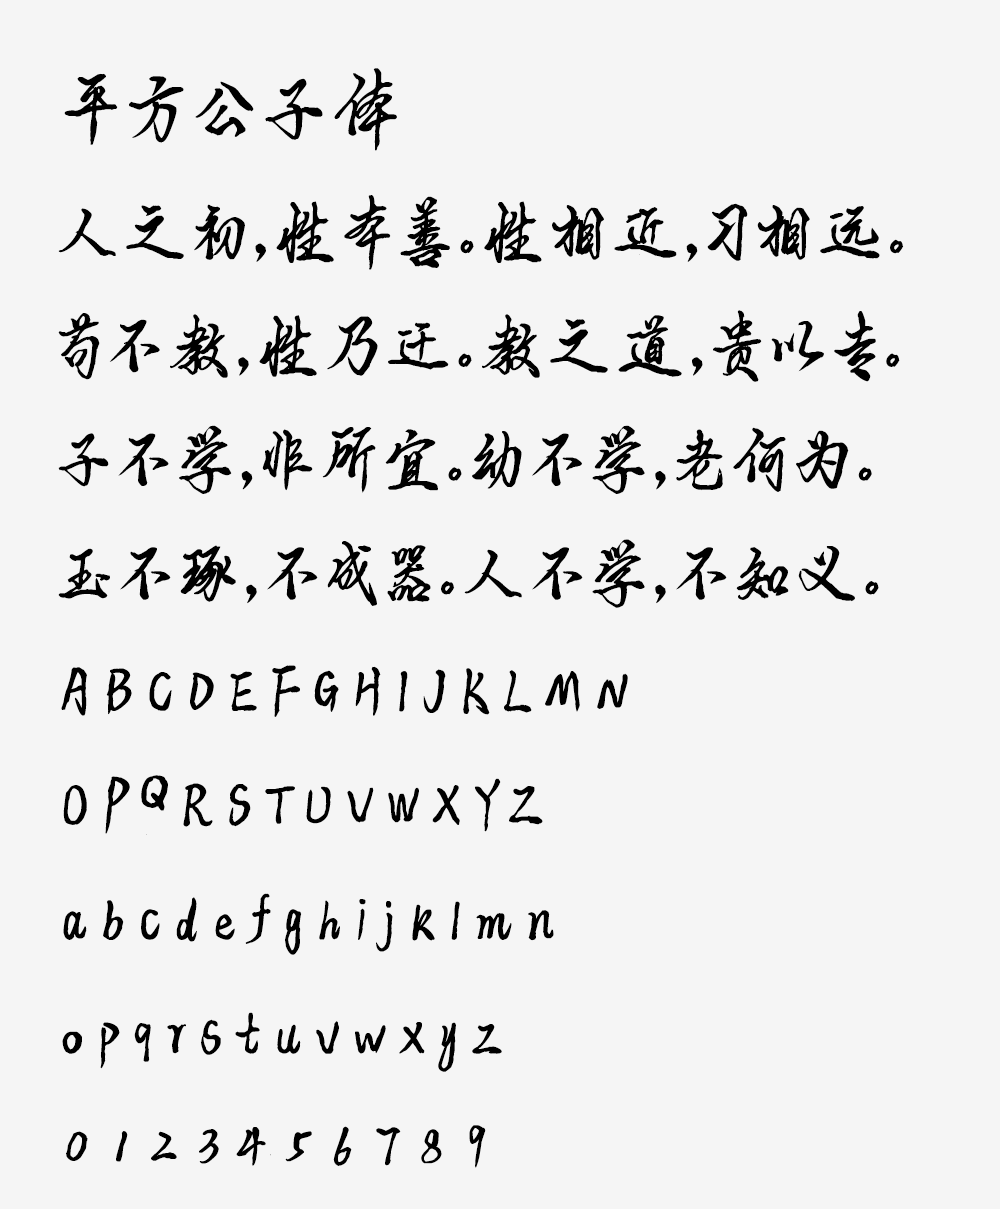 平方公子体
人之初,性本善。性相近,习相远。
苟不教,性乃迁。教之道,贵以专。
子不学,非所宜。幼不学,老何为。
玉不琢,不成器。人不学,不知义。
A B C D E F G H I J K L M N
O P Q R S T U V W X Y Z
a b c d e f g h i j k l m n
o p q r s t u v w x y z
0 1 2 3 4 5 6 7 8 9